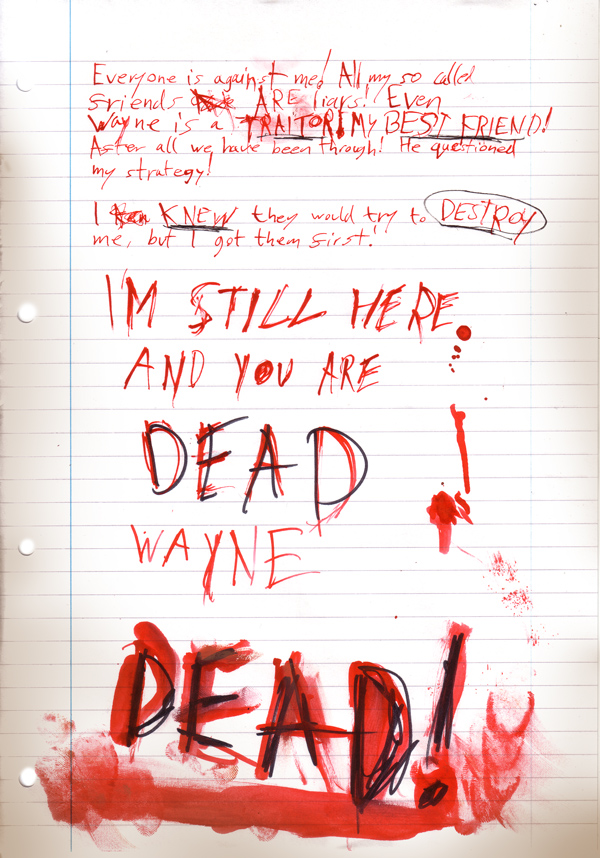 Everyone is against me! All my so called
friends ARE liars! Even
Wayne is a TRAITOR! MY BEST FRIEND!
After all we have been through! He questioned
my strategy!
I KNEW they would try to DESTROY
me, but I got them first!
I'M STILL HERE
AND YOU ARE
DEAD
WAYNE
DEAD!